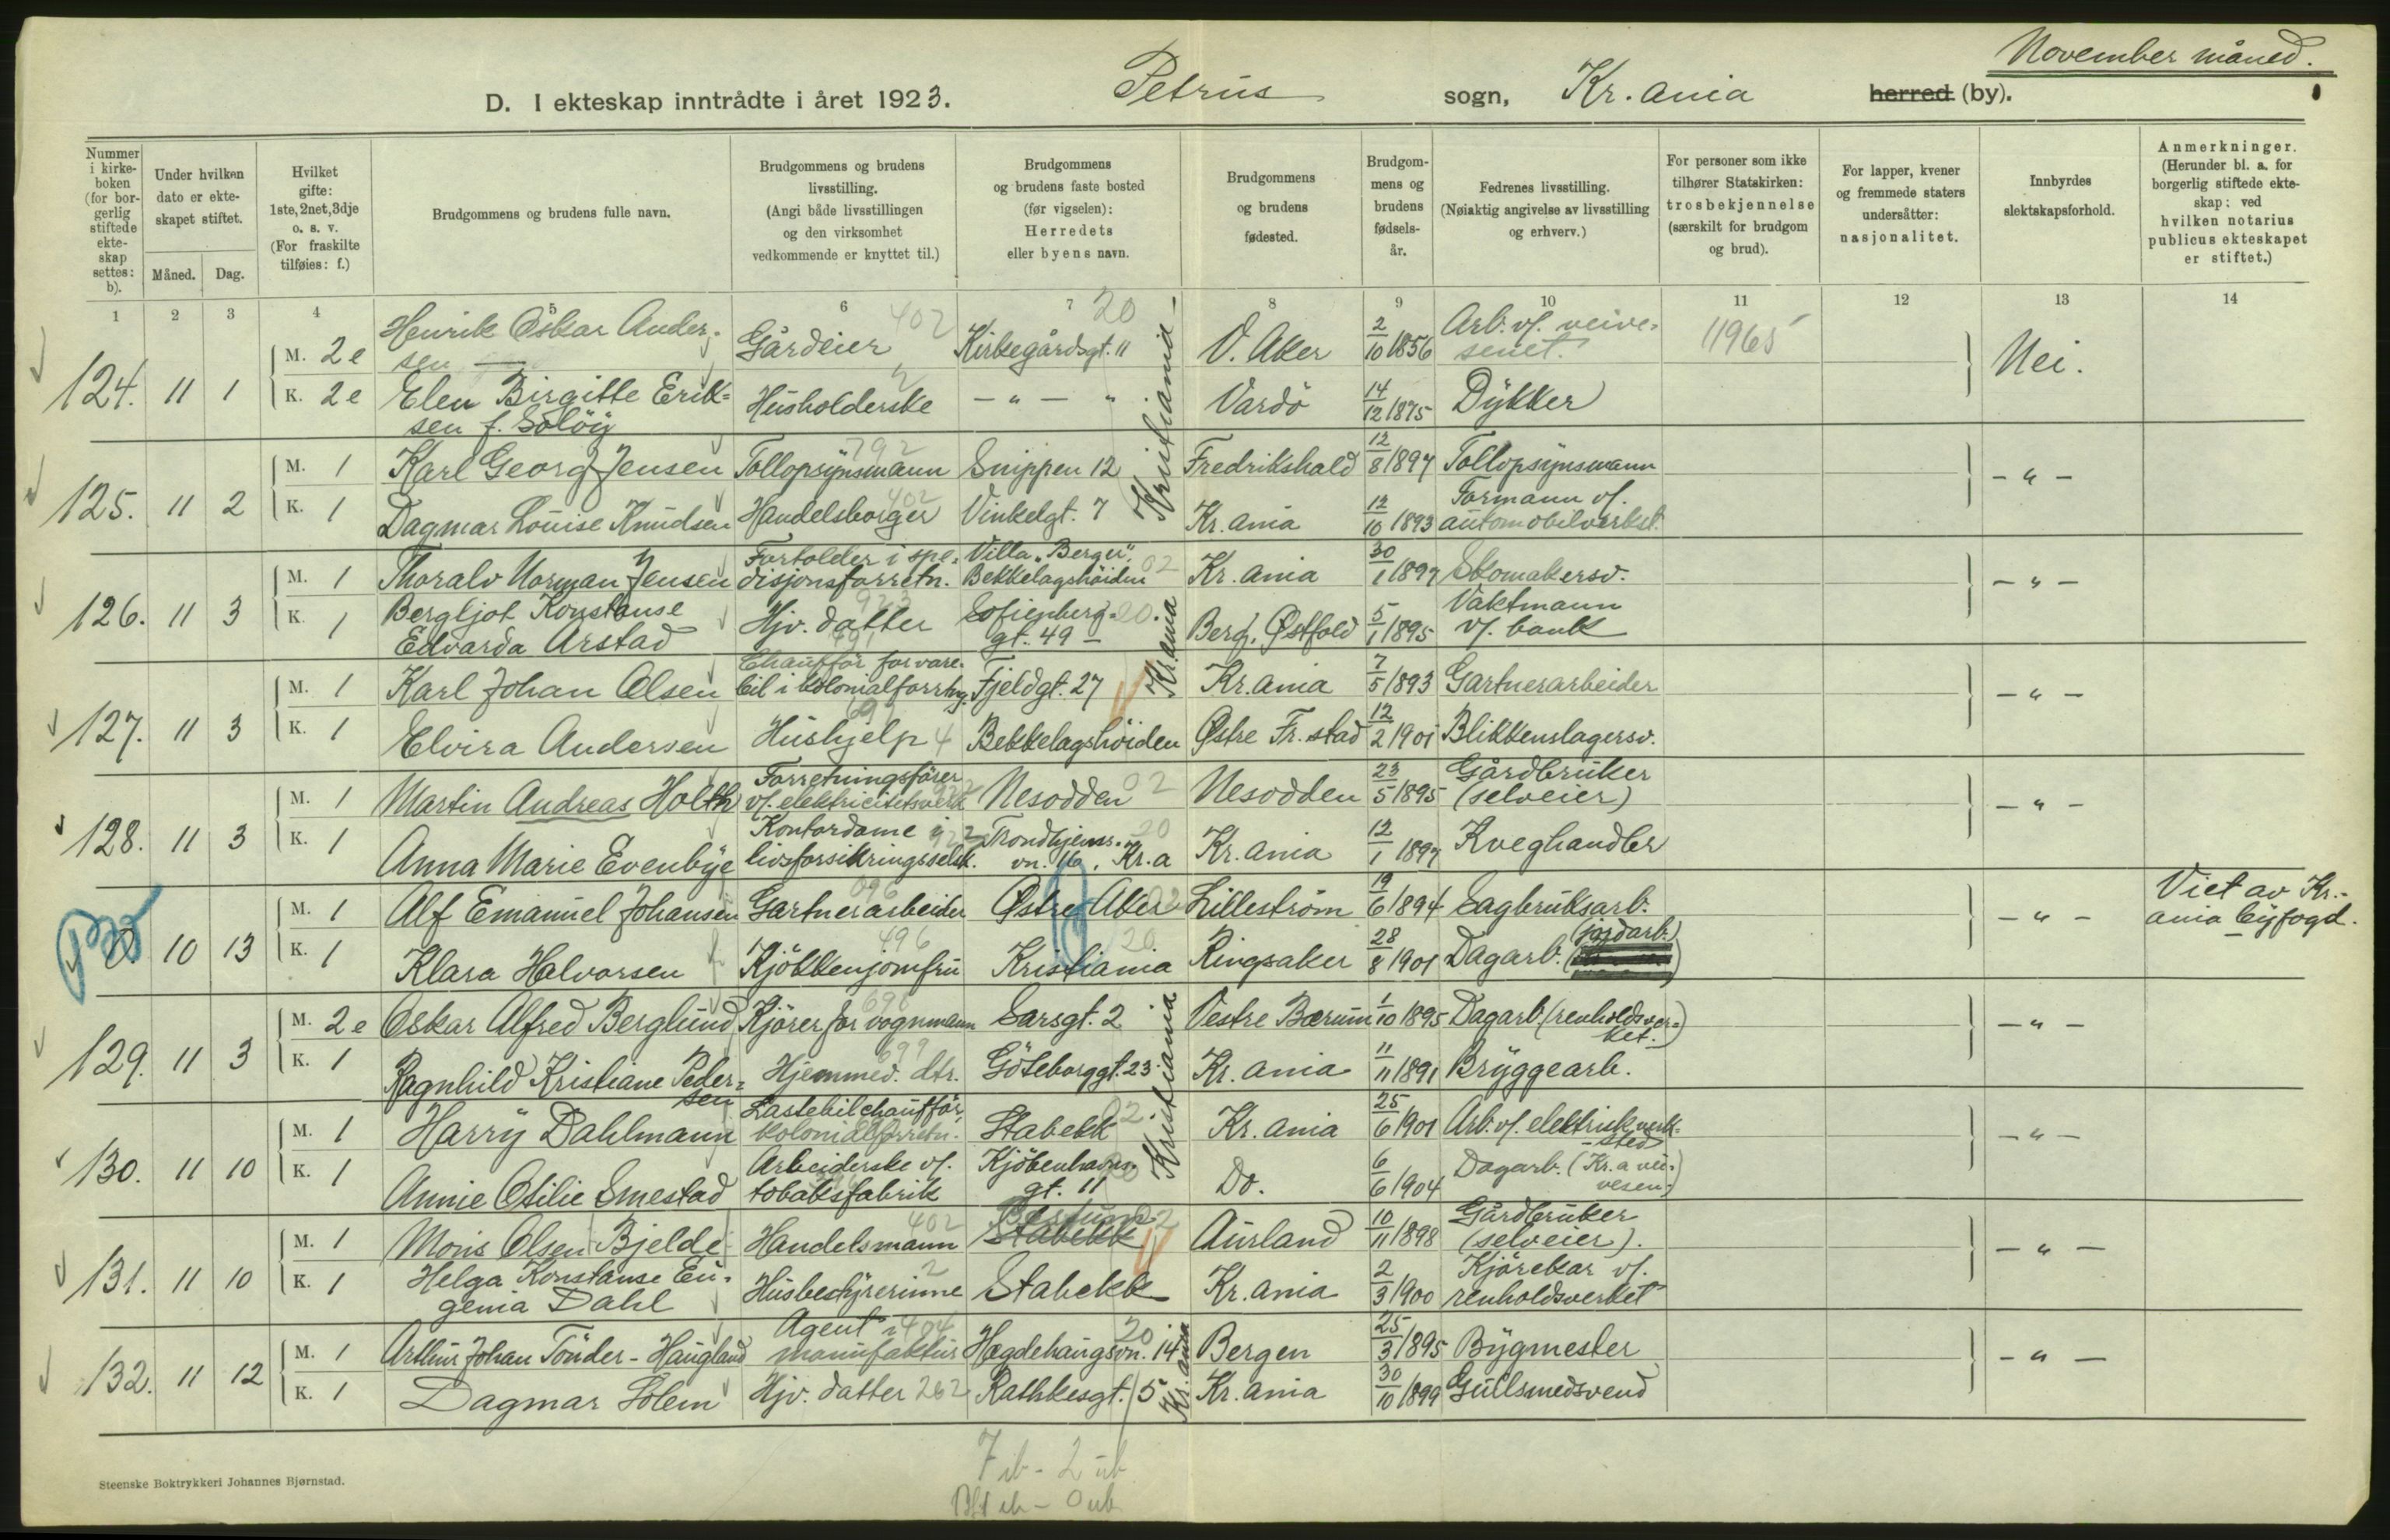 November måned.
D. I ekteskap inntrådte i året 1923. Petrus sogn, Kr.ania herred (by).
Nummer i kirke-boken (for bor-gerlig stiftede ekte-skap settes: b).
Under hvilken dato er ekte-skapet stiftet.
Måned. Dag.
Hvilket gifte: 1ste, 2net, 3dje o. s. v. (For fraskilte tilføies: f.)
Brudgommens og brudens fulle navn.
Brudgommens og brudens livsstilling. (Angi både livsstillingen og den virksomhet vedkommende er knyttet til.)
Brudgommens og brudens faste bosted (før vigselen): Herredets eller byens navn.
Brudgommens og brudens fødested.
Brudgom-mens og brudens fødsels-år.
Fedrenes livsstilling. (Nøiaktig angivelse av livsstilling og erhverv.)
For personer som ikke tilhører Statskirken: trosbekjennelse (særskilt for brudgom og brud).
For lapper, kvener og fremmede staters undersåtter: nasjonalitet.
Innbyrdes slektskapsforhold.
Anmerkninger. (Herunder bl. a. for borgerlig stiftede ekte-skap: ved hvilken notarius publicus ekteskapet er stiftet.)
1 2 3 4 5 6 7 8 9 10 11 12 13 14
124. 11 1 M. 2e Henrik Oskar Ander-sen Gårdeier 402 Kirkegårdsgt. 11 20 Kristiania V. Aker 2/10 1856 Arb. v/. veive-senet. 11965 Nei.
K. 2e Elen Birgitte Erik-sen f. Solöy Husholderske 2 - " - " Vardö 14/12 1875 Dykker
125. 11 2 M. 1 Karl Georg Jensen Tollopsynsmann 792 Snippen 12 Fredrikshald 12/8 1897 Tollopsynsmann - " -
K. 1 Dagmar Louise Knudsen Handelsborger 402 Vinkelgt. 7 Kr.ania 12/10 1893 Formann v/. automobilverket.
126. 11 3 M. 1 Thoralv Norman Jensen Fortolder i spe-disjonsforretn. Villa "Berger", Bekkelagshöiden 02 Kr.ania 30/1 1897 Skomakersv. - " -
K. 1 Bergljot Konstanse Edvarda Arstad Hjv. datter 923 Sofienberg-gt. 49 20. Kr.ania Berg, Østfold 5/1 1895 Vaktmann v/. bank
127. 11 3 M. 1 Karl Johan Olsen Chaufför for vare-bil i kolonialforrtng. Fjeldgt. 27 Kr.ania 7/5 1893 Gartnerarbeider - " -
K. 1 Elvira Andersen Hushjelp 4 Bekkelagshöiden Østre Fr.stad 12/2 1901 Blikkenslagersv.
128. 11 3 M. 1 Martin Andreas Holth Forretningsförer v/. elektricitetsverk Nesodden 02 Nesodden 23/5 1895 Gårdbruker (selveier) - " -
K. 1 Anna Marie Evenbye Kontordame i livsforsikringsselsk. Trondhjems-vn. 16, Kr.a 20 Kr.ania 12/1 1897 Kveghandler
10 13 M. 1 Alf Emanuel Johansen Gartnerarbeider 096 Østre Aker 02 Lilleström 19/6 1894 Sagbruksarb. - " - Viet av Kr.-ania byfogd.
K. 1 Klara Halvorsen Kjökkenjomfru 496 Kristiania 20 Ringsaker 28/8 1901 Dagarb. (jordarb.)
129. 11 3 M. 2e Oskar Alfred Berglund Kjörer for vognmann 696 Sarsgt. 2 Kristiania Vestre Bærum 1/10 1895 Dagarb. (renholdsver-ket.) - " -
K. 1 Ragnhild Kristiane Peder-sen Hjemmev. dtr. 699 Göteborggt. 23. Kr.ania 11/11 1891 Bryggearb.
130. 11 10 M. 1 Harry Dahlmann Lastebilchaufför, kolonialforretn. Stabekk 02 Kr.ania 25/6 1901 Arb. v/. elektrisk verk-sted - " -
K. 1 Annie Otilie Smestad Arbeiderske v/. tobaksfabrik Kjöbenhavns-gt. 11 20 Do. 6/6 1904 Dagarb. (Kr.a vei-vesen)
131. 11 10 M. 1 Mons Olsen Bjelde Handelsmann 402 Bestum 02 Stabekk Aurland 10/11 1898 Gårdbruker (selveier). - " -
K. 1 Helga Konstanse Eu-genia Dahl Husbestyrerinne 2 Stabekk Kr.ania 2/3 1900 Kjörekar v/. renholdsverket
132. 11 12 M. 1 Arthur Johan Tönder-Haugland Agent i manufaktur 404 Hegdehaugsvn. 14 20 Kr.ania Bergen 25/3 1895 Bygmester - " -
K. 1 Dagmar Solem Hjv. datter 262 Rathkesgt. 5 Kr.ania 30/10 1899 Gullsmedsvend
Steenske Boktrykkeri Johannes Bjørnstad.
7 ib - 2 ub